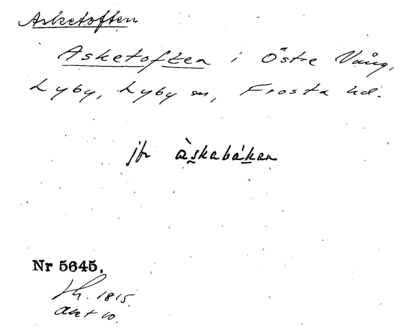 Asketoften
Asketoften i Östre Vång,
Lyby, Lyby sn, Frosta hd.
jfr àskabáken
Nr 5645.
1815.
akt 10